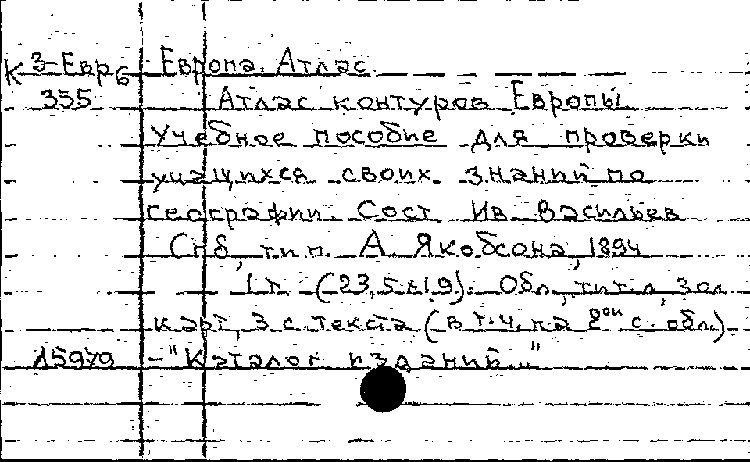 К 3-Евр 6 Европа. Атлас.
355 Атлас контуров Европы
Учебное пособие для проверки
учащихся своих знаний по
географии. Сост. Ив. Васильев
Спб, тип. А. Якобсона, 1894
1 л. (23,5x19). Обл., тит. л., 3 л.
карт, 3 с. текста (в т.ч. на 2ой с. обл.)
15979 - "Каталог изданий..."